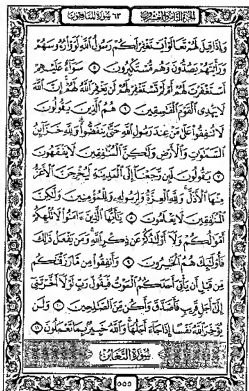 الجزء الثامن والعشرون ٦٣ سورة المنافقون
وَإِذَا قِيلَ لَهُمْ تَعَالَوْا۟ يَسْتَغْفِرْ لَكُمْ رَسُولُ ٱللَّهِ لَوَّوْا۟ رُءُوسَهُمْ
وَرَأَيْتَهُمْ يَصُدُّونَ وَهُم مُّسْتَكْبِرُونَ ٥ سَوَآءٌ عَلَيْهِمْ
أَسْتَغْفَرْتَ لَهُمْ أَمْ لَمْ تَسْتَغْفِرْ لَهُمْ لَن يَغْفِرَ ٱللَّهُ لَهُمْ إِنَّ ٱللَّهَ
لَا يَهْدِى ٱلْقَوْمَ ٱلْفَـٰسِقِينَ ٦ هُمُ ٱلَّذِينَ يَقُولُونَ
لَا تُنفِقُوا۟ عَلَىٰ مَنْ عِندَ رَسُولِ ٱللَّهِ حَتَّىٰ يَنفَضُّوا۟ وَلِلَّهِ خَزَآئِنُ
ٱلسَّمَـٰوَٰتِ وَٱلْأَرْضِ وَلَـٰكِنَّ ٱلْمُنَـٰفِقِينَ لَا يَفْقَهُونَ
٧ يَقُولُونَ لَئِن رَّجَعْنَآ إِلَى ٱلْمَدِينَةِ لَيُخْرِجَنَّ ٱلْأَعَزُّ
مِنْهَا ٱلْأَذَلَّ وَلِلَّهِ ٱلْعِزَّةُ وَلِرَسُولِهِۦ وَلِلْمُؤْمِنِينَ وَلَـٰكِنَّ
ٱلْمُنَـٰفِقِينَ لَا يَعْلَمُونَ ٨ يَـٰٓأَيُّهَا ٱلَّذِينَ ءَامَنُوا۟ لَا تُلْهِكُمْ
أَمْوَٰلُكُمْ وَلَآ أَوْلَـٰدُكُمْ عَن ذِكْرِ ٱللَّهِ وَمَن يَفْعَلْ ذَٰلِكَ
فَأُو۟لَـٰٓئِكَ هُمُ ٱلْخَـٰسِرُونَ ٩ وَأَنفِقُوا۟ مِن مَّا رَزَقْنَـٰكُم
مِّن قَبْلِ أَن يَأْتِىَ أَحَدَكُمُ ٱلْمَوْتُ فَيَقُولَ رَبِّ لَوْلَآ أَخَّرْتَنِىٓ
إِلَىٰٓ أَجَلٍ قَرِيبٍ فَأَصَّدَّقَ وَأَكُن مِّنَ ٱلصَّـٰلِحِينَ ١٠ وَلَن
يُؤَخِّرَ ٱللَّهُ نَفْسًا إِذَا جَآءَ أَجَلُهَا وَٱللَّهُ خَبِيرٌۢ بِمَا تَعْمَلُونَ ١١
سورة التغابن
٥٥٥